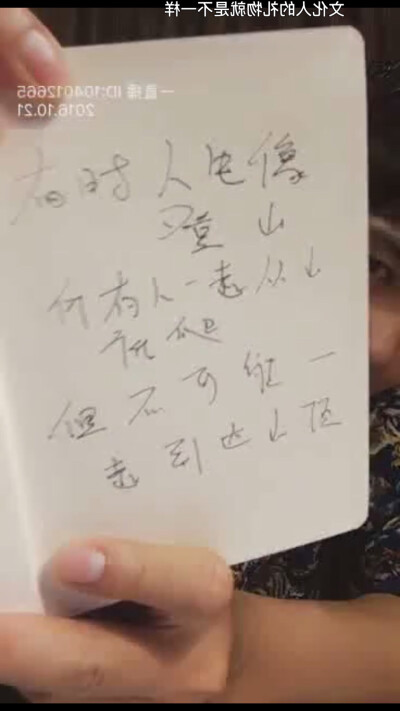 文化人的礼物就是不一样
一直播 ID:104012665
2016.10.21
有时人生像
登山
有人一起从山
爬
但不可能一
起到达山顶